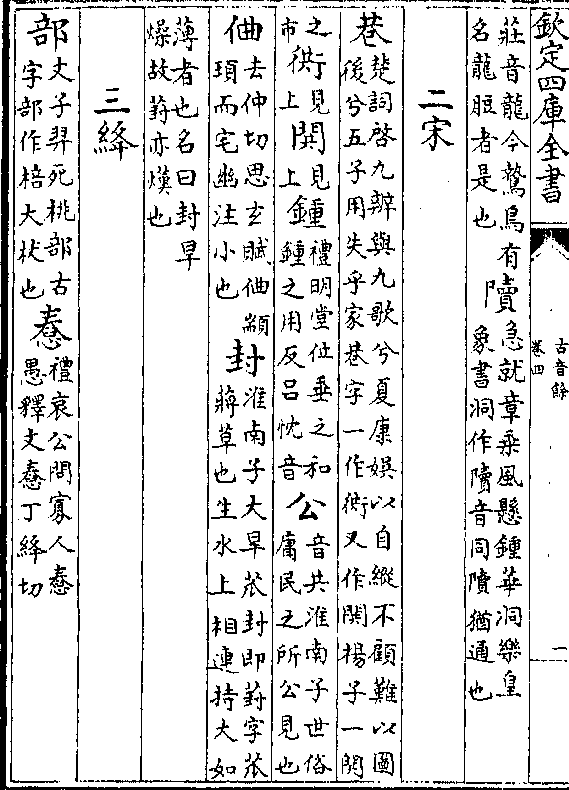 欽定四庫全書
古音餘
卷四
一
莊音龍今鶩鳥有
名龍脰者是也
急就章乘風懸鍾華洞樂皇
象書洞作 音同 猶通也
二宋
巷
楚詞啓九辯與九歌兮夏康娛以自縱不顧難以圖
後兮五子用失乎家巷字一作衖又作閧楊子一閧
之
市
衖
見
上
閧
見
上
鍾
禮明堂位垂之和
鍾之用反呂忱音
公
音共淮南子世俗
庸民之所公見也
去仲切思玄賦 顓
頊而宅幽注小也
封
淮南子大旱苽封即葑字苽
蔣草也生水上相連持大如
薄者也名曰封旱
燥故葑亦熯也
三絳
部
丈子羿死桃部古
字部作棓大杖也
惷
禮哀公問寡人惷
愚釋文惷丁絳切